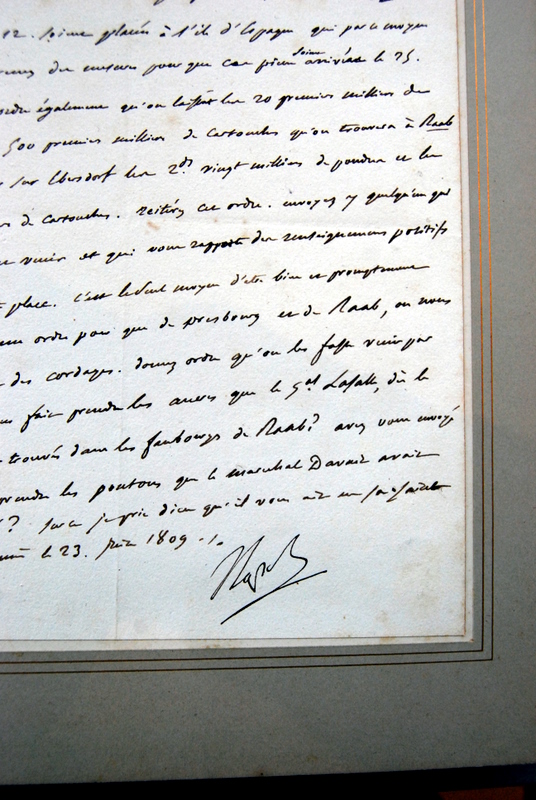 12. soient placés à l'ile d'Espagne qui par ce moyen
des mesures pour que ces pièces soient arrivées le 25.
également qu'on laissât les 20 premiers milliers de
500 premiers milliers de cartouches qu'on trouvera à Raab
sur Ebersdorf les 2ds vingt milliers de poudre et les
de cartouches. réitérés cet ordre. envoyés y quelqu'un qui
et qui vous rapporte des renseignemens positifs
place. C'est le seul moyen d'etre bien et promptement
ordre pour que de presbourg et de Raab, on nous
des cordages. donnez ordre qu'on les fasse venir par
fait prendre les ancres que le gal Lasalle, dit
trouvés dans les faubourgs de Raab? avez vous envoyé
prendre les pontons que le maréchal Davout avait
? sur ce je prie dieu qu'il vous ait en sa sainte
le 23. juin 1809 ./.
Nap